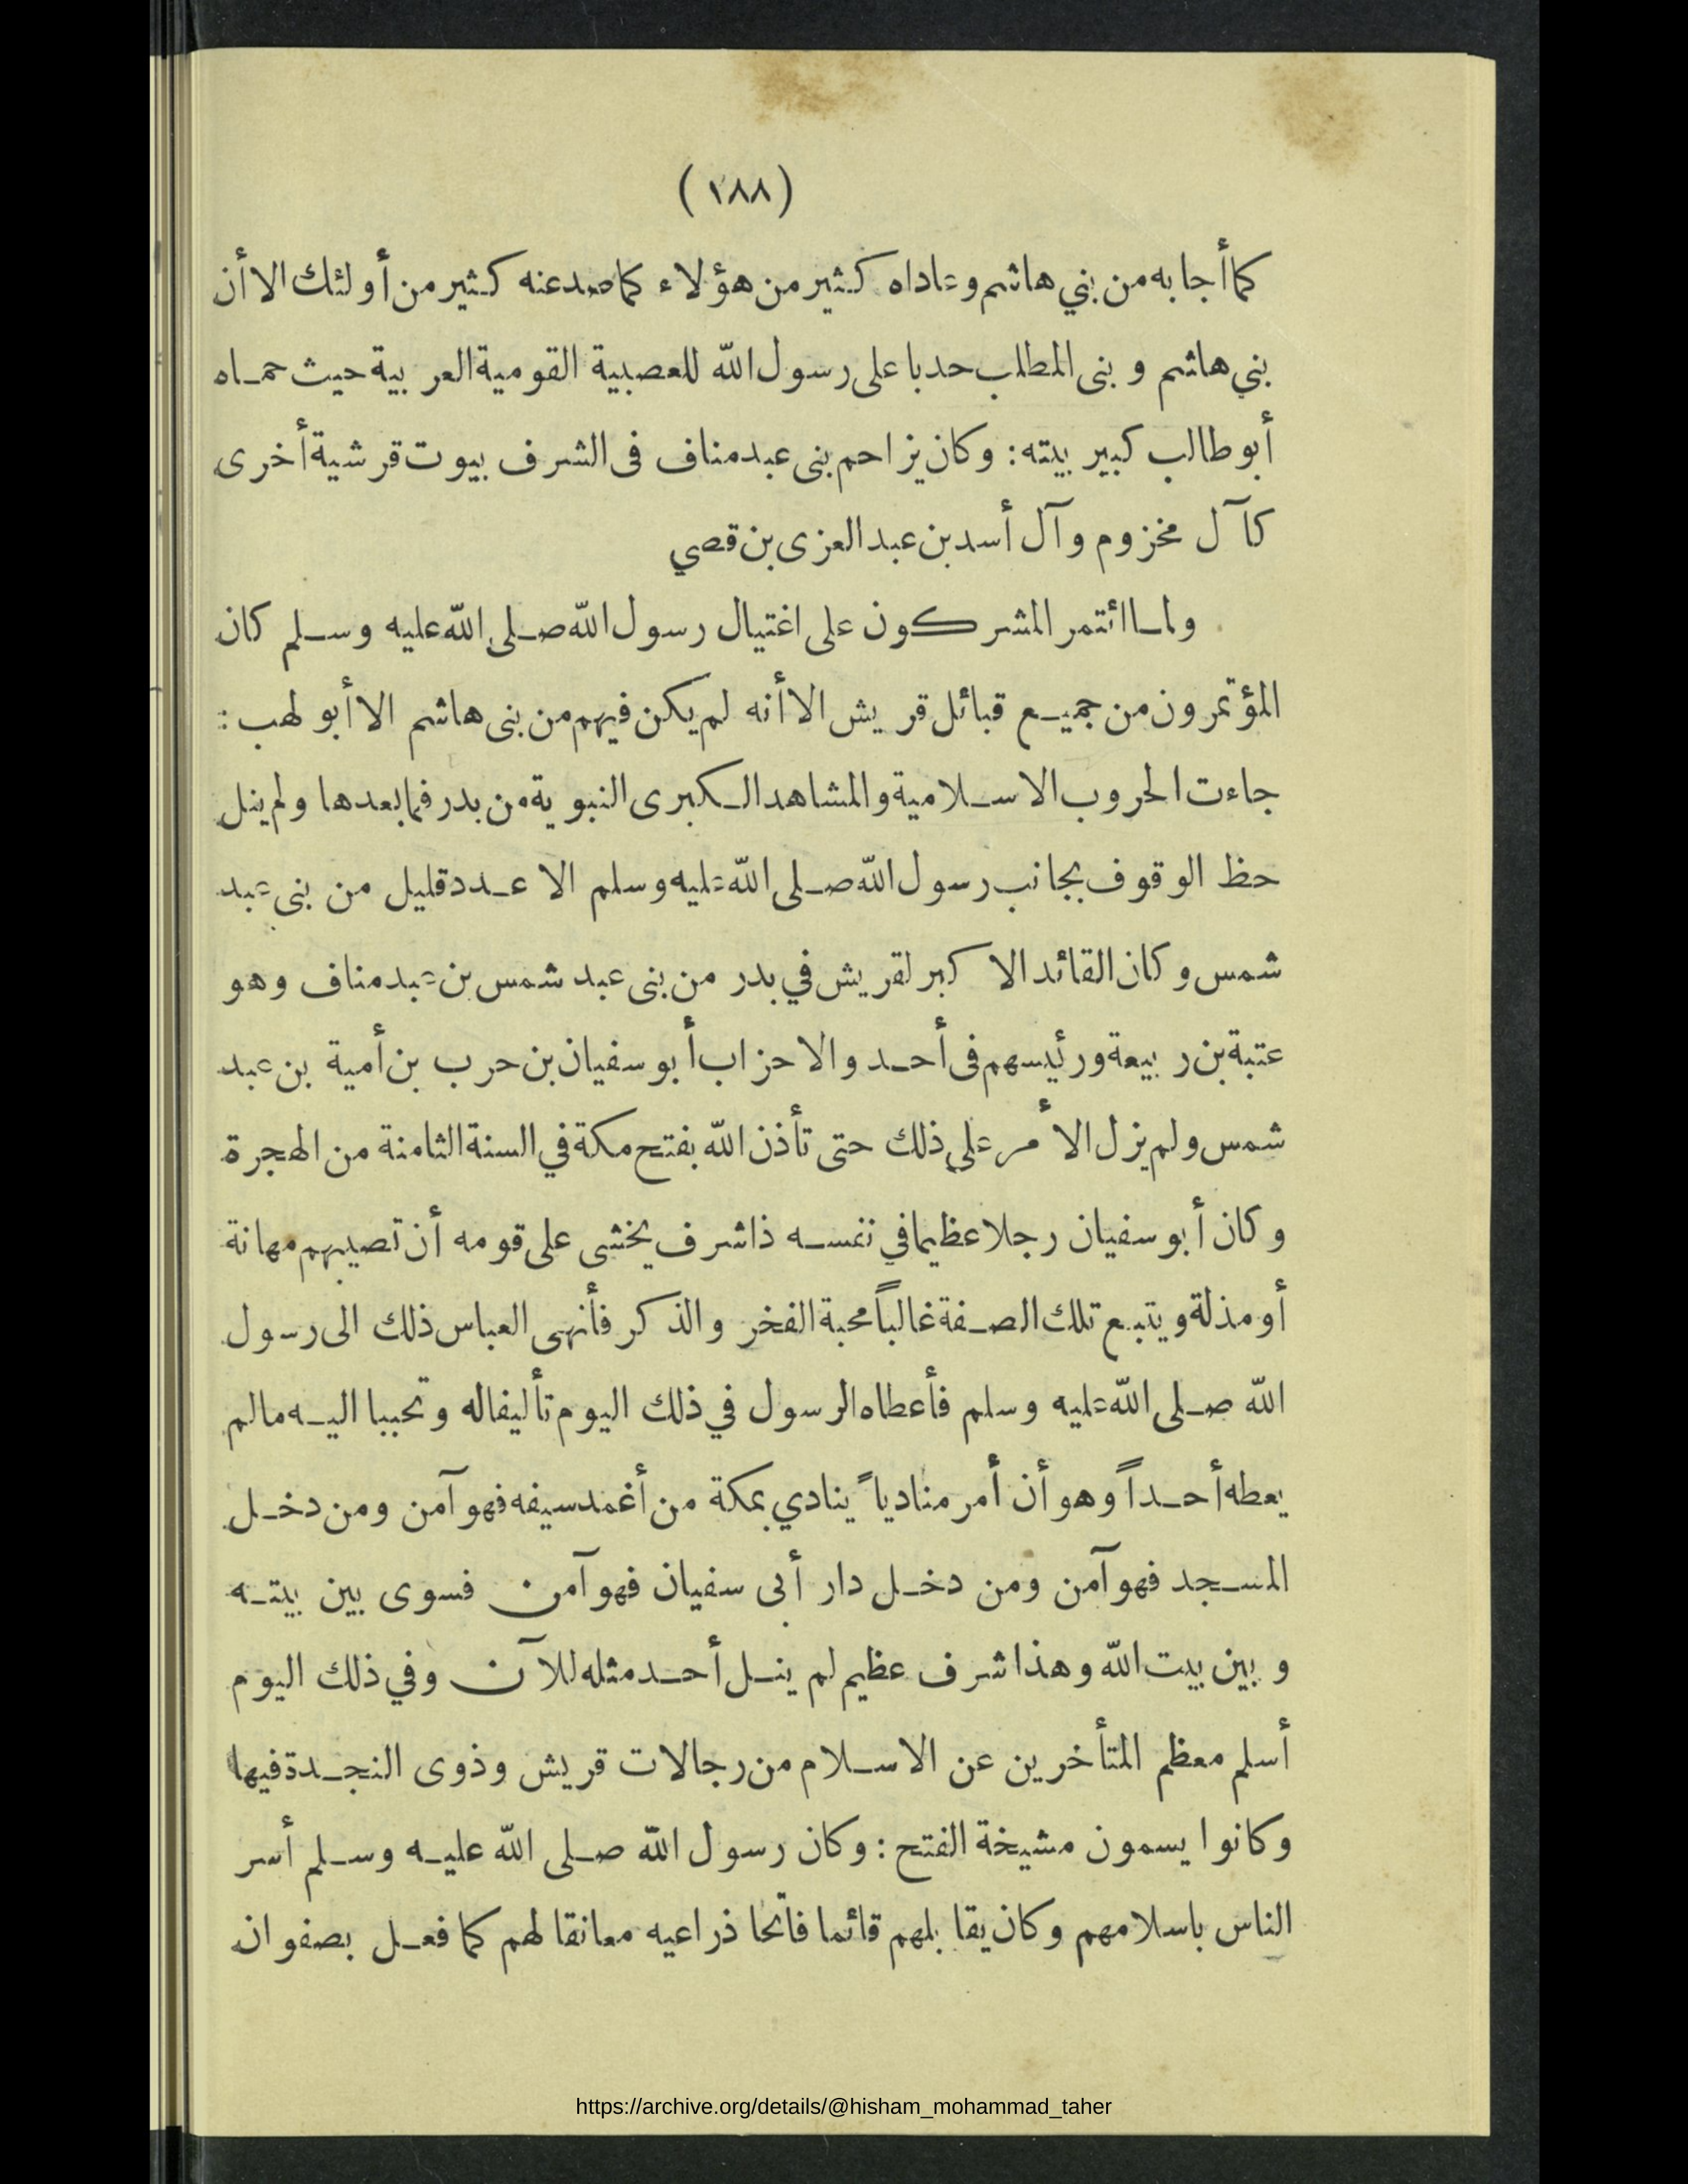 (١٨٨)
كما أجابه من بني هاشم وعاداه كثير من هؤلاء كما صد عنه كثير من أولئك الا أن
بني هاشم و بنى المطلب حدبا على رسول الله للعصبية القومية العربية حيث حماه
أبو طالب كبير بيته : وكان يزاحم بنى عبد مناف فى الشرف بيوت قرشية أخرى
كآل مخزوم وآل أسد بن عبد العزى بن قصي
ولما ائتمر المشركون على اغتيال رسول الله صلى الله عليه وسلم كان
المؤتمرون من جميع قبائل قريش الا أنه لم يكن فيهم من بنى هاشم الا أبو لهب :
جاءت الحروب الاسلامية والمشاهد الكبرى النبوية من بدر فما بعدها ولم ينل
حظ الوقوف بجانب رسول الله صلى الله عليه وسلم الا عدد قليل من بنى عبد
شمس وكان القائد الاكبر لقريش في بدر من بنى عبد شمس بن عبد مناف وهو
عتبة بن ربيعة ورئيسهم فى أحد والاحزاب أبو سفيان بن حرب بن أمية بن عبد
شمس ولم يزل الأمر على ذلك حتى تأذن الله بفتح مكة في السنة الثامنة من الهجرة
وكان أبو سفيان رجلا عظيما في نفسه ذا شرف يخشى على قومه أن تصيبهم مهانة
أو مذلة ويتبع تلك الصفة غالباً محبة الفخر والذكر فأنهى العباس ذلك الى رسول
الله صلى الله عليه وسلم فأعطاه الرسول في ذلك اليوم تأليفا له وتحببا اليه مالم
يعطه أحداً وهو أن أمر منادياً ينادي بمكة من أغمد سيفه فهو آمن ومن دخل
المسجد فهو آمن ومن دخل دار أبى سفيان فهو آمن فسوى بين بيته
و بين بيت الله وهذا شرف عظيم لم ينل أحد مثله للآن وفي ذلك اليوم
أسلم معظم المتأخرين عن الاسلام من رجالات قريش وذوى النجدة فيها
وكانوا يسمون مشيخة الفتح : وكان رسول الله صلى الله عليه وسلم أسر
الناس باسلامهم وكان يقابلهم قائما فاتحا ذراعيه معانقا لهم كما فعل بصفوان
https://archive.org/details/@hisham_mohammad_taher